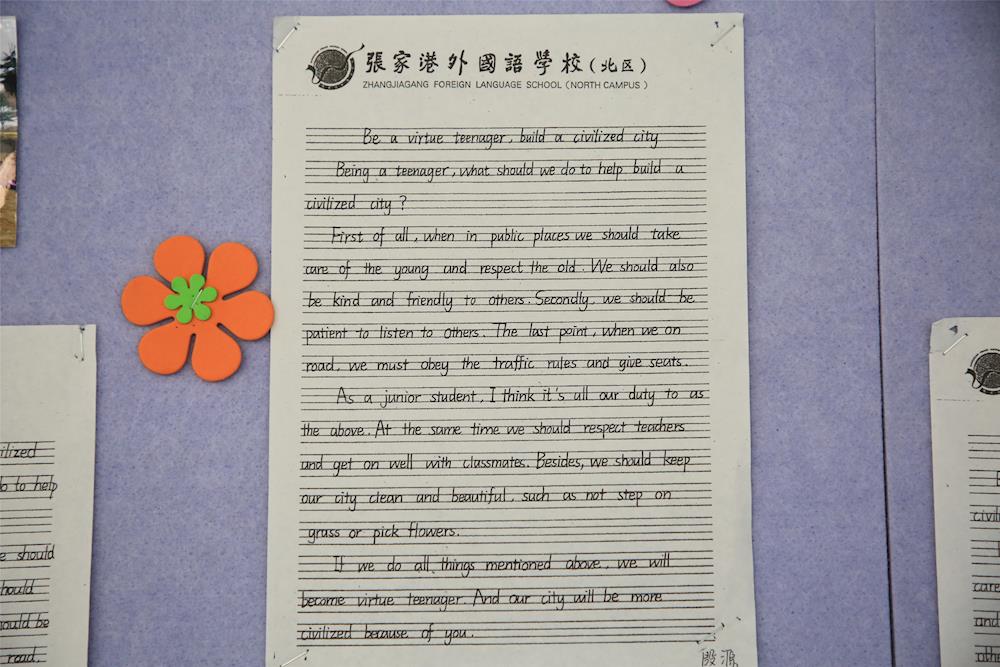 張家港外國語學校(北区)
ZHANGJIAGANG FOREIGN LANGUAGE SCHOOL (NORTH CAMPUS)
Be a virtue teenager, build a civilized city
Being a teenager, what should we do to help build a
civilized city ?
First of all, when in public places we should take
care of the young and respect the old. We should also
be kind and friendly to others. Secondly, we should be
patient to listen to others. The last point, when we on
road, we must obey the traffic rules and give seats.
As a junior student, I think it's all our duty to as
the above. At the same time we should respect teachers
and get on well with classmates. Besides, we should keep
our city clean and beautiful, such as not step on
grass or pick flowers.
If we do all things mentioned above, we will
become virtue teenager. And our city will be more
civilized because of you.
殷源
ilized
o to help
e should
hould
ould be
road,
civil
care
and
othe